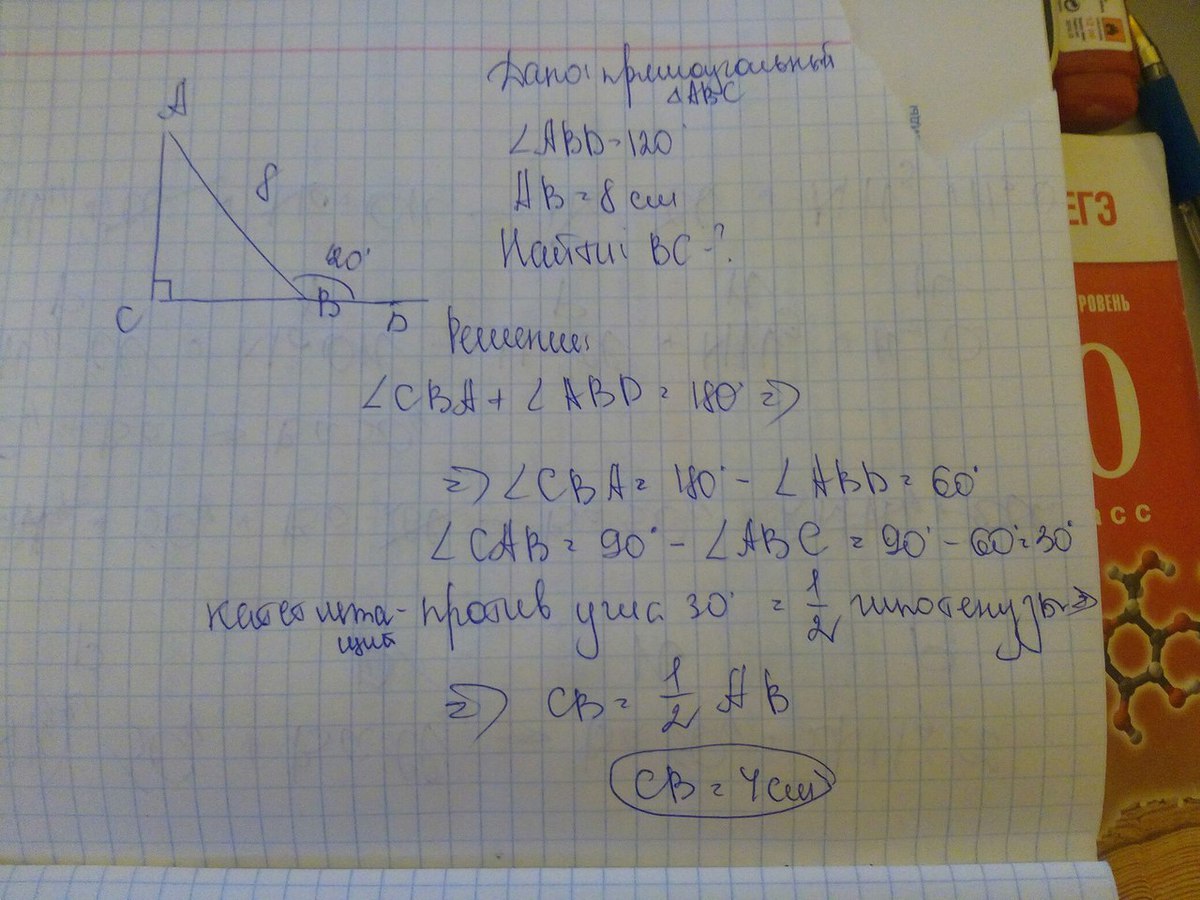 Дано: прямоугольный
△ABC
∠ABD=120°
AB=8 см
Найти: BC-?
A
8
120°
C
B
D
Решение:
∠CBA+∠ABD=180°⇒
⇒∠CBA=180°-∠ABD=60°
∠CAB=90°-∠ABC=90°-60°=30°
Катет лежа-
щий против угла 30°=1/2 гипотенузы⇒
⇒ CB=1/2 AB
CB=4см
ЕГЭ
РОВЕНЬ
0
асс